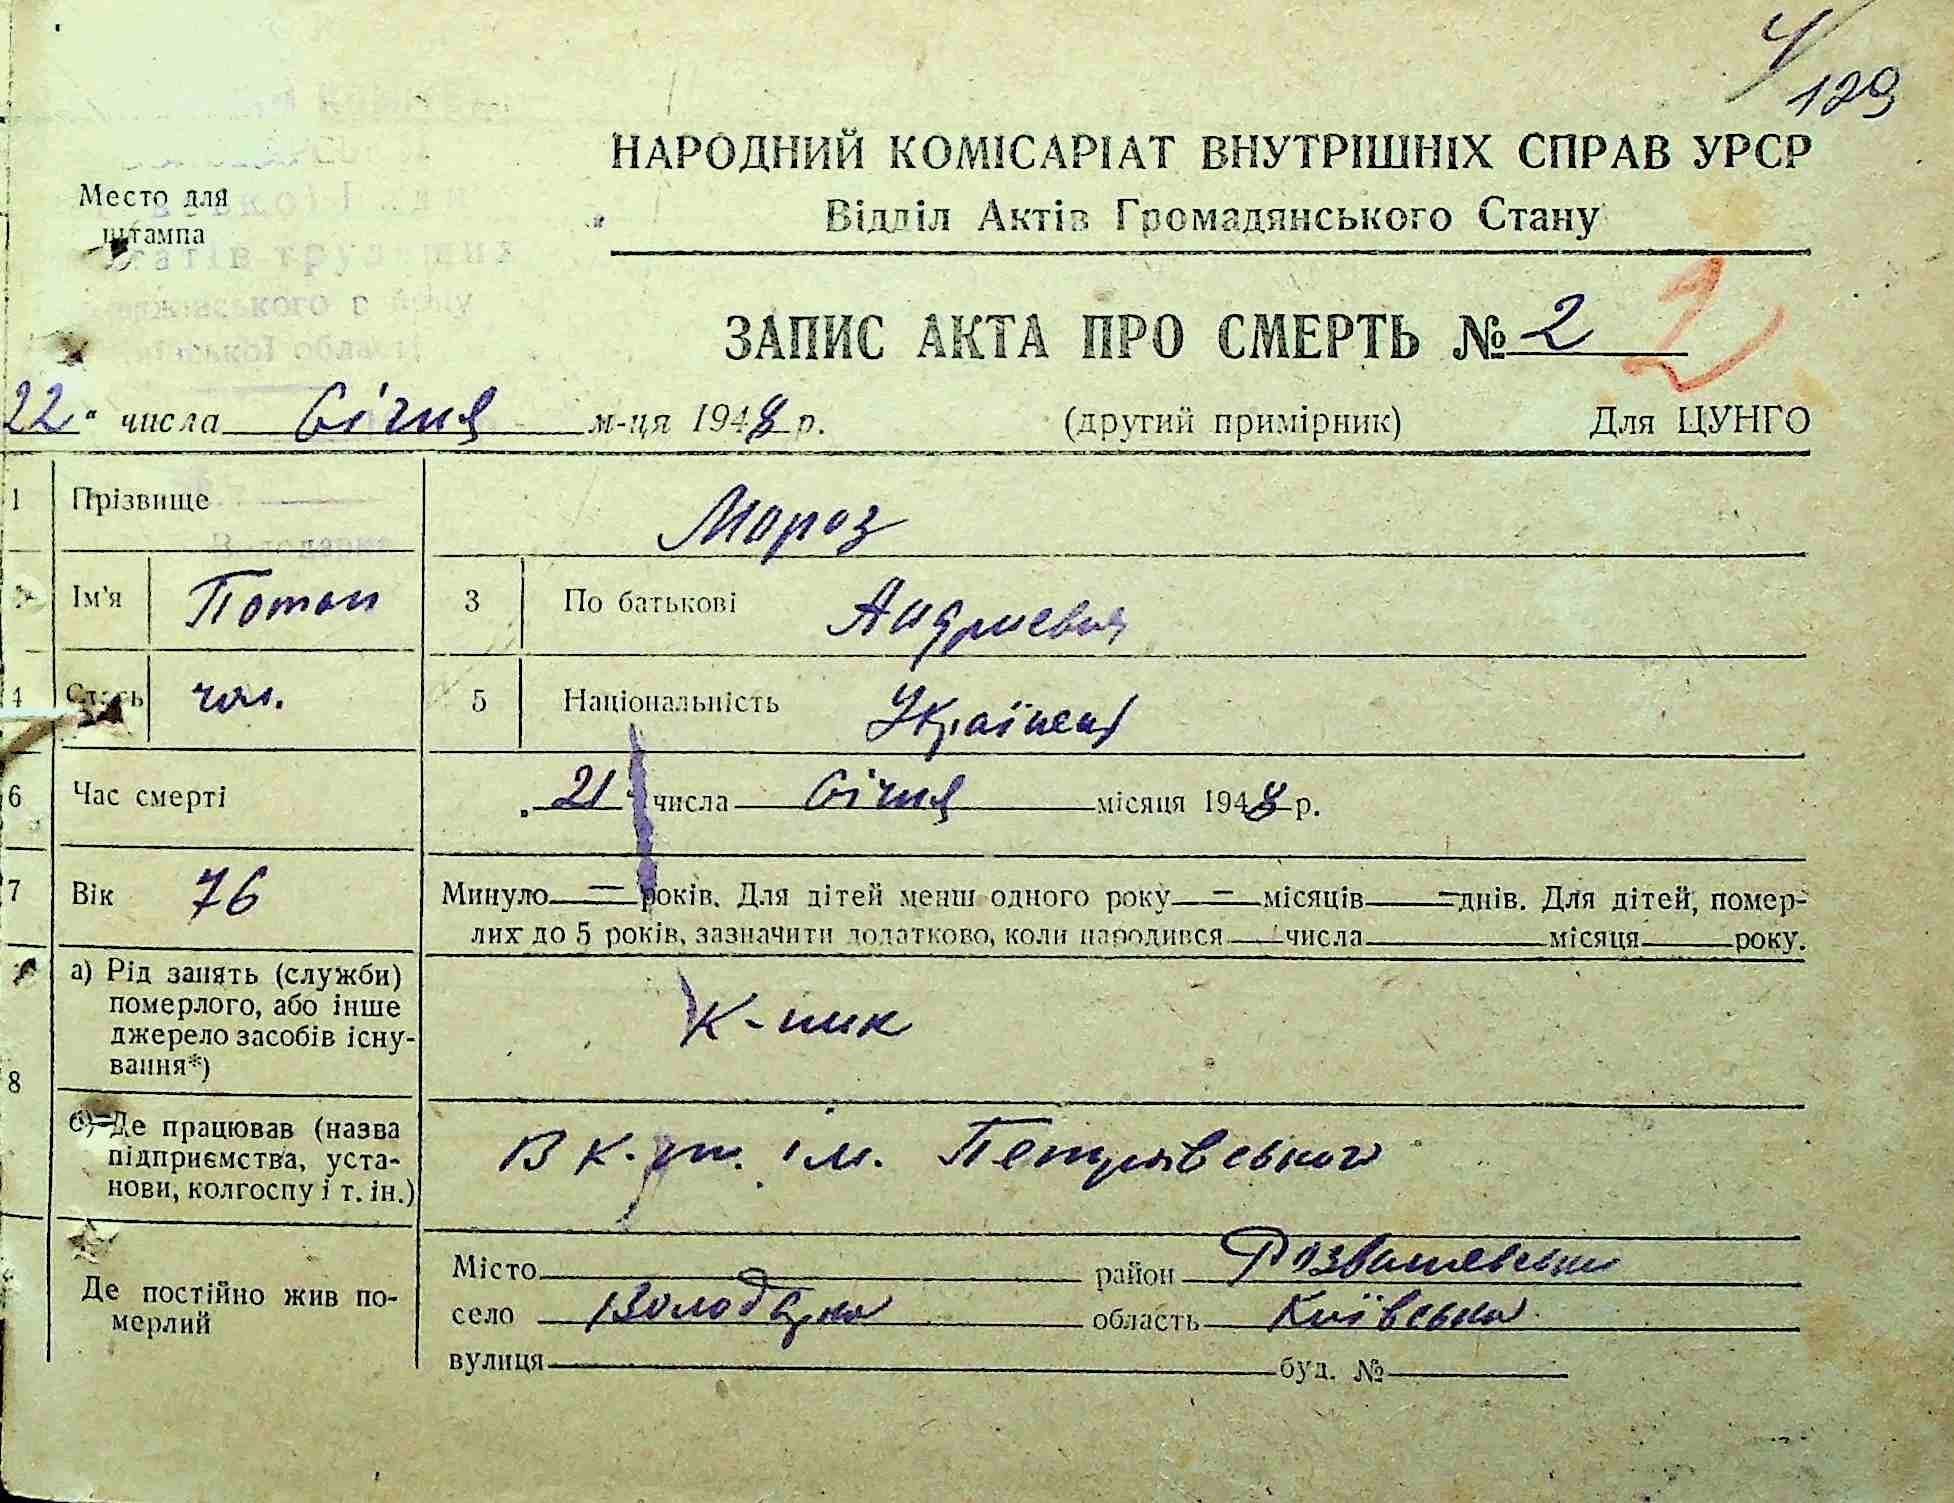 4/129
НАРОДНИЙ КОМІСАРІАТ ВНУТРІШНІХ СПРАВ УРСР
Відділ Актів Громадянського Стану
Место для
штампа
ЗАПИС АКТА ПРО СМЕРТЬ № 2 2
22" числа Січня м-ця 1948 р. (другий примірник) Для ЦУНГО
1 Прізвище Мороз
Ім'я Потап 3 По батькові Андриевич
4 Стать чол. 5 Національність Українец
6 Час смерті „21" числа Січня місяця 1948 р.
7 Вік 76 Минуло = років. Для дітей менш одного року = місяців = днів. Для дітей, помер-
лих до 5 років, зазначити додатково, коли народився числа місяця року.
8 а) Рід занять (служби)
померлого, або інше
джерело засобів існу-
вання*)
К-ник
б) Де працював (назва
підприємства, уста-
нови, колгоспу і т. ін.)
В к-пі ім. Петрівського
Де постійно жив по-
мерлий
Місто район Розважевський
село Володарка область Київська
вулиця буд. №